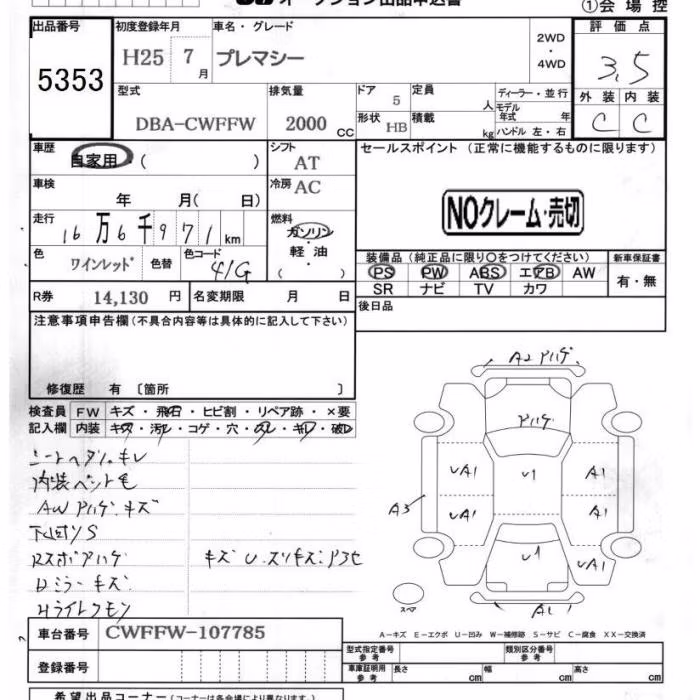 オークション出品申込書
①会場控
出品番号
5353
初度登録年月
H25 7月
車名・グレード
プレマシー
2WD
・
4WD
評価点
3.5
外装 内装
C C
型式
DBA-CWFFW
排気量
2000 CC
ドア
5
定員
人
形状
HB
積載
kg
ディーラー・並行
モデル年式 年
ハンドル 左・右
車歴
自家用・( )
シフト
AT
車検
年 月( 日)
冷房
AC
走行
16万6千971km
燃料
ガソリン
・
軽油
( )
色
ワインレッド
色替
色コード
41G
R券 14,130 円
名変期限 月 日
セールスポイント (正常に機能するものに限ります)
NOクレーム・売切
装備品 (純正品に限り○をつけてください)
PS PW ABS エアB AW
SR ナビ TV カワ
新車保証書
有・無
後日品
注意事項申告欄(不具合内容等は具体的に記入して下さい)
修復歴 有 〔箇所 〕
検査員記入欄
FW キズ・飛石・ヒビ割・リペア跡・×要
内装 キズ・汚レ・コゲ・穴・スレ・キレ・破レ
シートヘタリ.キレ
内装ペット毛
AWアハゲ.キズ
下回りS
Rスポアハゲ
キズU.スリキズ
Dミラーキズ
A2アハゲ
アハゲ
UA1
U1
A1
A3
UA1
A1
U1
UA1
A1
スペア
A-キズ E-エクボ U-凹み W-補修跡 S-サビ C-腐食 XX-交換済
車台番号 CWFFW-107785
登録番号
型式指定番号
参考
類別区分番号
参考
車庫証明用
参考
長さ cm
幅 cm
高さ cm
希望出品コーナー(コーナーは各会場により